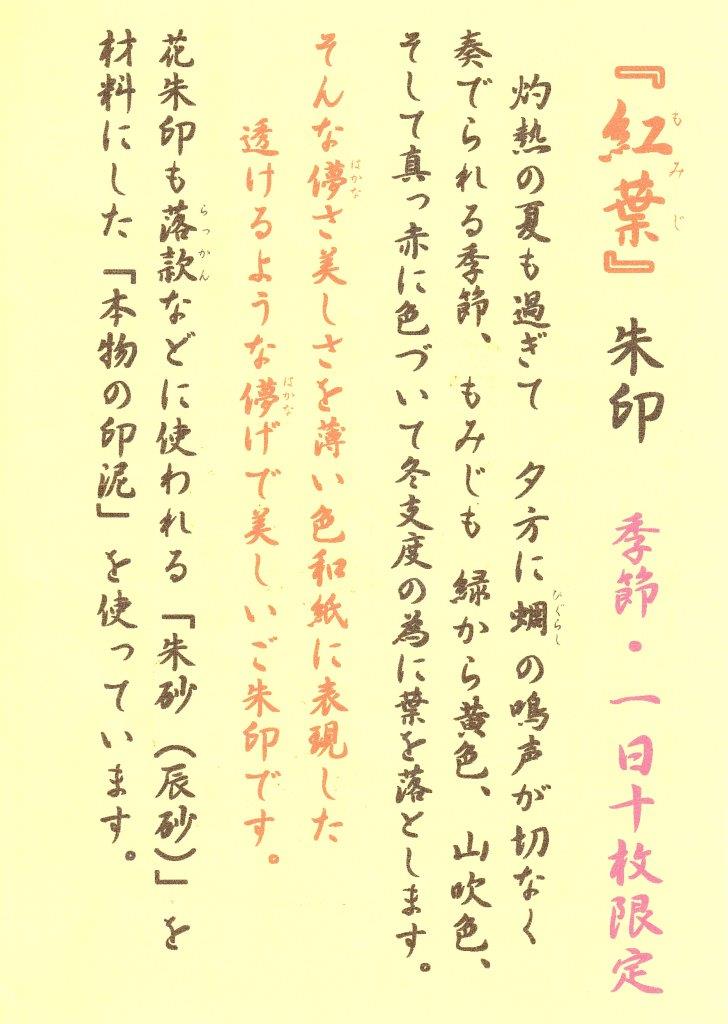 『紅葉』 朱印 季節・一日十枚限定
もみじ
灼熱の夏も過ぎて 夕方に蜩の鳴声が切なく
ひぐらし
奏でられる季節、もみじも 緑から黄色、山吹色、
そして真っ赤に色づいて冬支度の為に葉を落とします。
そんな儚さ美しさを薄い色和紙に表現した
はかな
透けるような儚げで美しいご朱印です。
はかな
花朱印も落款などに使われる「朱砂（辰砂）」を
らっかん
材料にした「本物の印泥」を使っています。